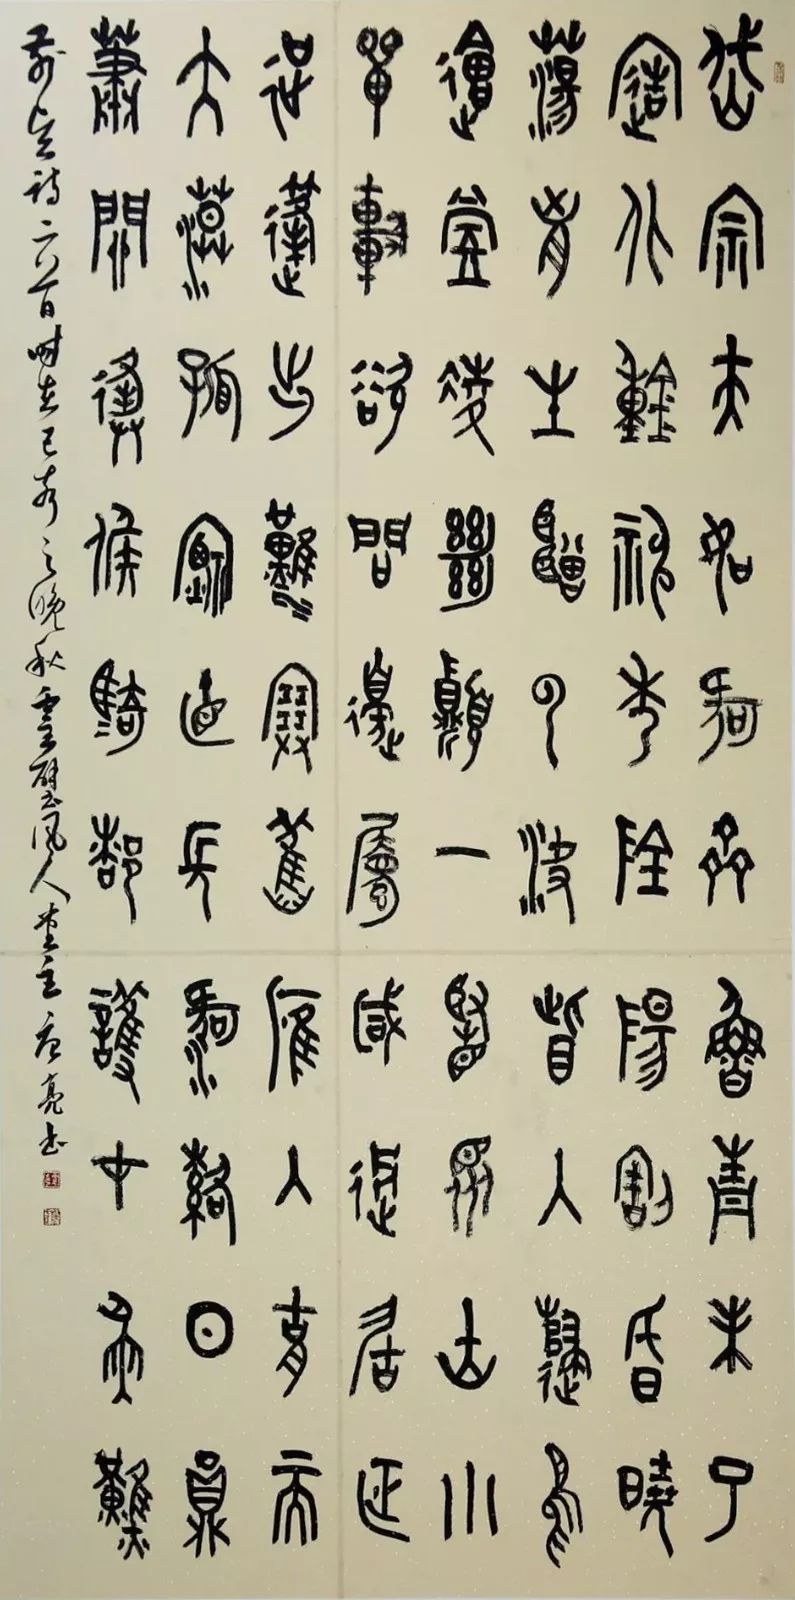 岱宗夫如何齊魯青未了
造化鍾神秀陰陽割昏曉
蕩胸生層雲決眥入歸鳥
會當凌絕頂一覽眾山小
單車欲問邊屬國過居延
征蓬出漢塞歸雁入胡天
大漠孤煙直長河落日圓
蕭關逢候騎都護在燕然
詩二首時在己亥之晚秋雲風人堂主亮書